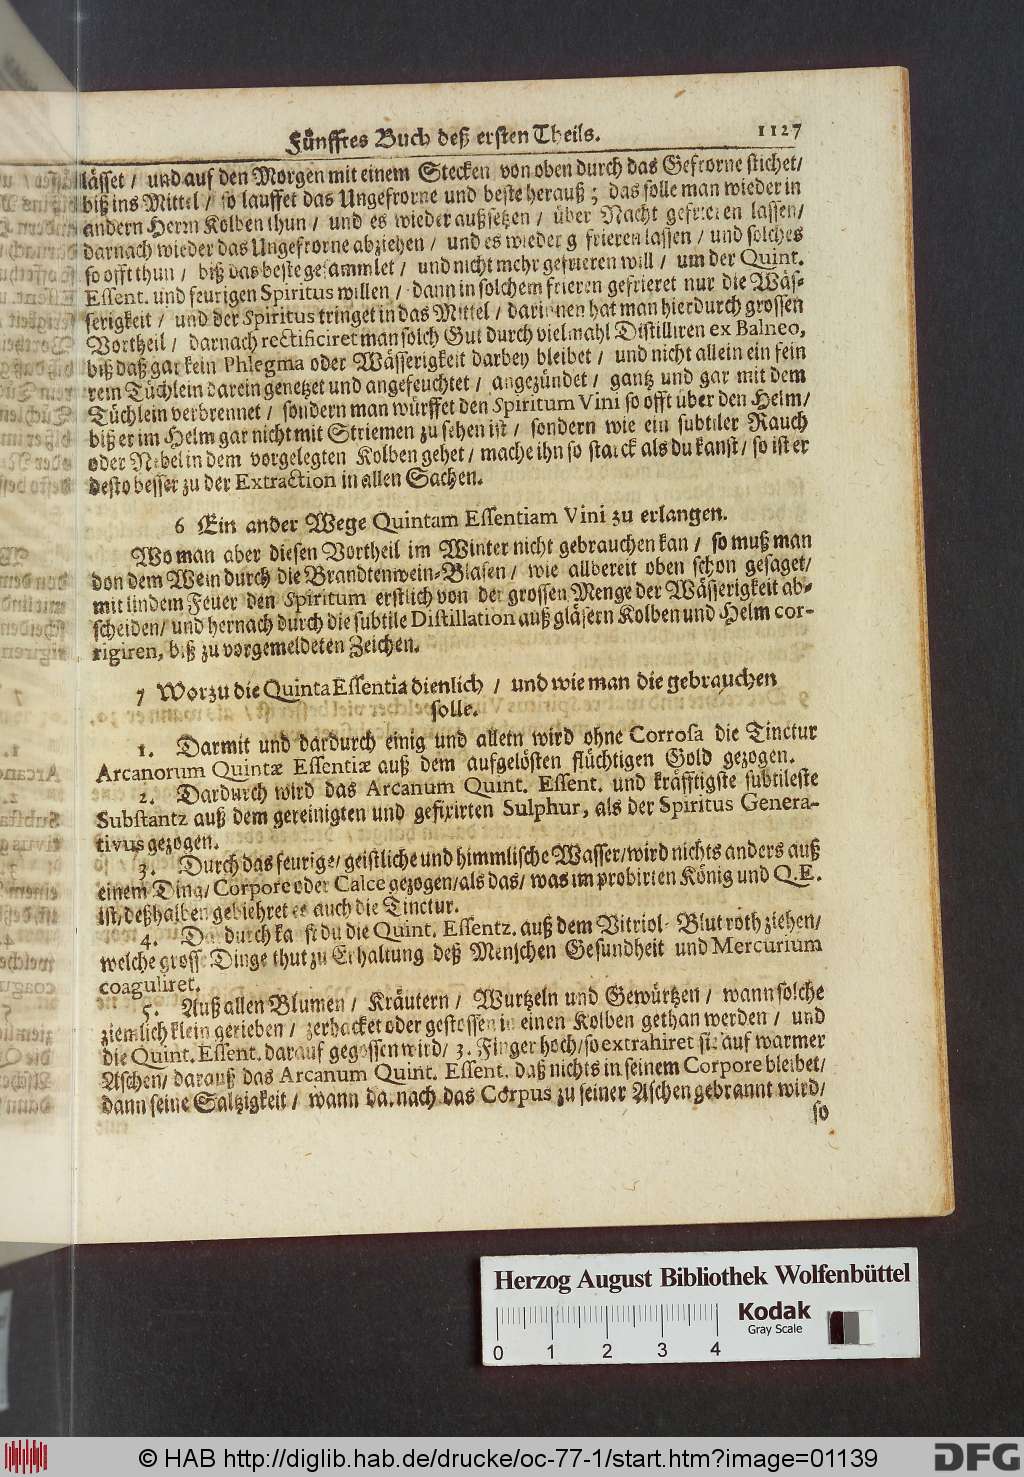 Fünfftes Buch deß ersten Theils. 1127
lässet / und auf den Morgen mit einem Stecken von oben durch das Gefrorne stichet/
biß ins Mittel / so lauffet das Ungefrorne und beste herauß ; das solle man wieder in
andern Herm Kolben thun / und es wieder außsetzen / über Nacht gefrieren lassen/
darnach wieder das Ungefrorne abziehen / und es wieder g frieren lassen / und solches
so offt thun / biß das beste gesammlet / und nicht mehr gefrieren will / um der Quint.
Essent. und feurigen Spiritus willen / dann in solchem frieren gefrieret nur die Wäs-
serigkeit / und der Spiritus tringet in das Mittel / darinnen hat man hierdurch grossen
Vortheil / darnach rectificiret man solch Gut durch vielmahl Distilliren ex Balneo,
biß daß gar kein Phlegma oder Wässerigkeit darbey bleibet / und nicht allein ein fein
rein Tüchlein darein genetzet und angefeuchtet / angezündet / gantz und gar mit dem
Tüchlein verbrennet / sondern man würffet den Spiritum Vini so offt über den Helm/
biß er im Helm gar nicht mit Striemen zu sehen ist / sondern wie ein subtiler Rauch
oder Nebel in dem vorgelegten Kolben gehet / mache ihn so starck als du kanst / so ist er
desto besser zu der Extraction in allen Sachen.
6 Ein ander Wege Quintam Essentiam Vini zu erlangen.
Wo man aber diesen Vortheil im Winter nicht gebrauchen kan / so muß man
don dem Wein durch die Brandtenwein-Blasen / wie allbereit oben schon gesaget/
mit lindem Feuer den Spiritum erstlich von der grossen Menge der Wässerigkeit ab-
scheiden/ und hernach durch die subtile Distillation auß gläsern Kolben und Helm cor-
rigiren, biß zu vorgemeldeten Zeichen.
7 Worzu die Quinta Essentia dienlich / und wie man die gebrauchen
solle.
1. Darmit und dardurch einig und allein wird ohne Corrosa die Tinctur
Arcanorum Quintæ Essentiæ auß dem aufgelösten flüchtigen Gold gezogen.
2. Dardurch wird das Arcanum Quint. Essent. und kräfftigste subtileste
Substantz auß dem gereinigten und gefixirten Sulphur, als der Spiritus Genera-
tivus gezogen.
3. Durch das feurige/ geistliche und himmlische Wasser/ wird nichts anders auß
einem Ding/ Corpore oder Calce gezogen/ als das/ was im probirten König und Q.E.
ist/ deßhalben gebiehret es auch die Tinctur.
4. Da durch ka st du die Quint. Essentz. auß dem Vitriol- Blutroth ziehen/
welche grosse Dinge thut zu Erhaltung deß Menschen Gesundheit und Mercurium
coaguliret.
5. Auß allen Blumen / Kräutern / Wurtzeln und Gewürtzen / wann solche
ziemlich klein gerieben / zerhacket oder gestossen in einen Kolben gethan werden / und
die Quint. Essent. darauf gegossen wird/ 3. Finger hoch/ so extrahiret sie auf warmer
Aschen/ darauß das Arcanum Quint. Essent. daß nichts in seinem Corpore bleibet/
dann seine Saltzigkeit / wann darnach das Corpus zu seiner Aschen gebrannt wird/
so
Herzog August Bibliothek Wolfenbüttel
Kodak
Gray Scale
0 1 2 3 4
© HAB http://diglib.hab.de/drucke/oc-77-1/start.htm?image=01139
DFG